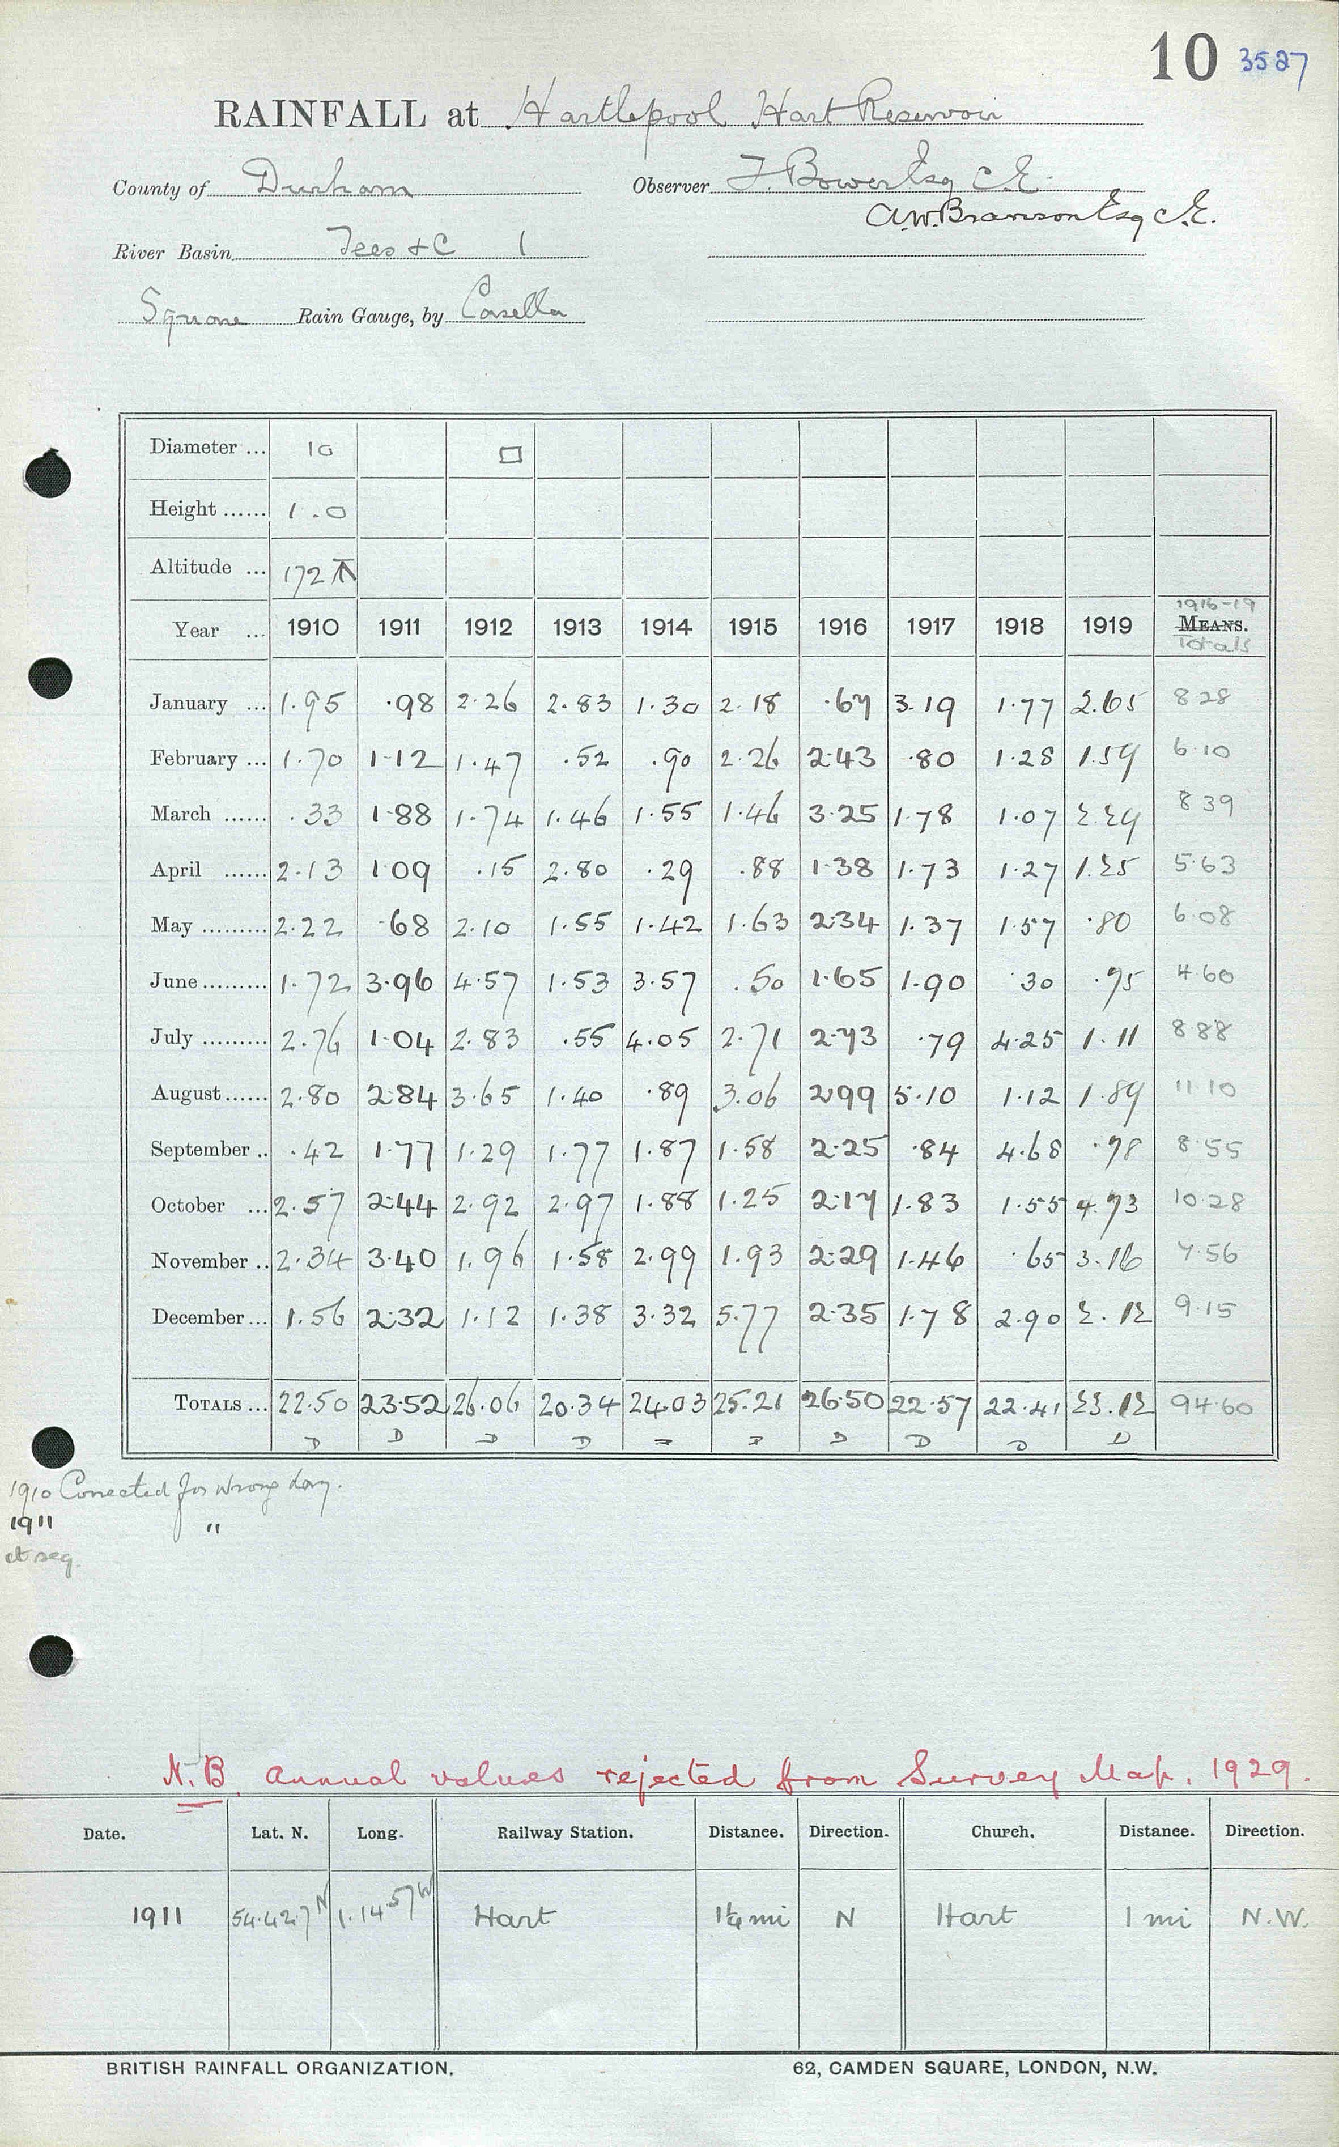 10 3527
RAINFALL at Hartlepool Hart Reservoir
County of Durham Observer J. Bower Esq C.E.
A.W. Branson Esq C.E.
River Basin Tees &C 1
Square Rain Gauge, by Casella
Diameter ... 10 □
Height ...... 1.0
Altitude ... 172
1916-19
Year ... 1910 1911 1912 1913 1914 1915 1916 1917 1918 1919 MEANS.
Totals
January ... 1.95 .98 2.26 2.83 1.30 2.18 .67 3.19 1.77 2.65 8.28
February ... 1.70 1.12 1.47 .52 .90 2.26 2.43 .80 1.28 1.59 6.10
March ...... .33 1.88 1.74 1.46 1.55 1.46 3.25 1.78 1.07 2.29 8.39
April ...... 2.13 1.09 .15 2.80 .29 .88 1.38 1.73 1.27 1.25 5.63
May ......... 2.22 .68 2.10 1.55 1.42 1.63 2.34 1.37 1.57 .80 6.08
June ......... 1.72 3.96 4.57 1.53 3.57 .50 1.65 1.90 .30 .75 4.60
July ......... 2.76 1.04 2.83 .55 4.05 2.71 2.73 .79 4.25 1.11 8.88
August ...... 2.80 2.84 3.65 1.40 .89 3.06 2.99 5.10 1.12 1.89 11.10
September .. .42 1.77 1.29 1.77 1.87 1.58 2.25 .84 4.68 .78 8.55
October ... 2.57 2.44 2.92 2.97 1.88 1.25 2.17 1.83 1.55 4.73 10.28
November .. 2.34 3.40 1.96 1.58 2.99 1.93 2.29 1.46 .65 3.16 7.56
December ... 1.56 2.32 1.12 1.38 3.32 5.77 2.35 1.78 2.90 2.12 9.15
TOTALS ... 22.50 23.52 26.06 20.34 24.03 25.21 26.50 22.57 22.41 23.12 94.60
1910 Corrected for wrong day.
1911 "
et seq.
N.B. Annual values rejected from Survey Map. 1929.
Date. Lat. N. Long. Railway Station. Distance. Direction. Church. Distance. Direction.
1911 54.42.7 N 1.14.57 W Hart 1¼ mi N Hart 1 mi N.W.
BRITISH RAINFALL ORGANIZATION, 62, CAMDEN SQUARE, LONDON, N.W.